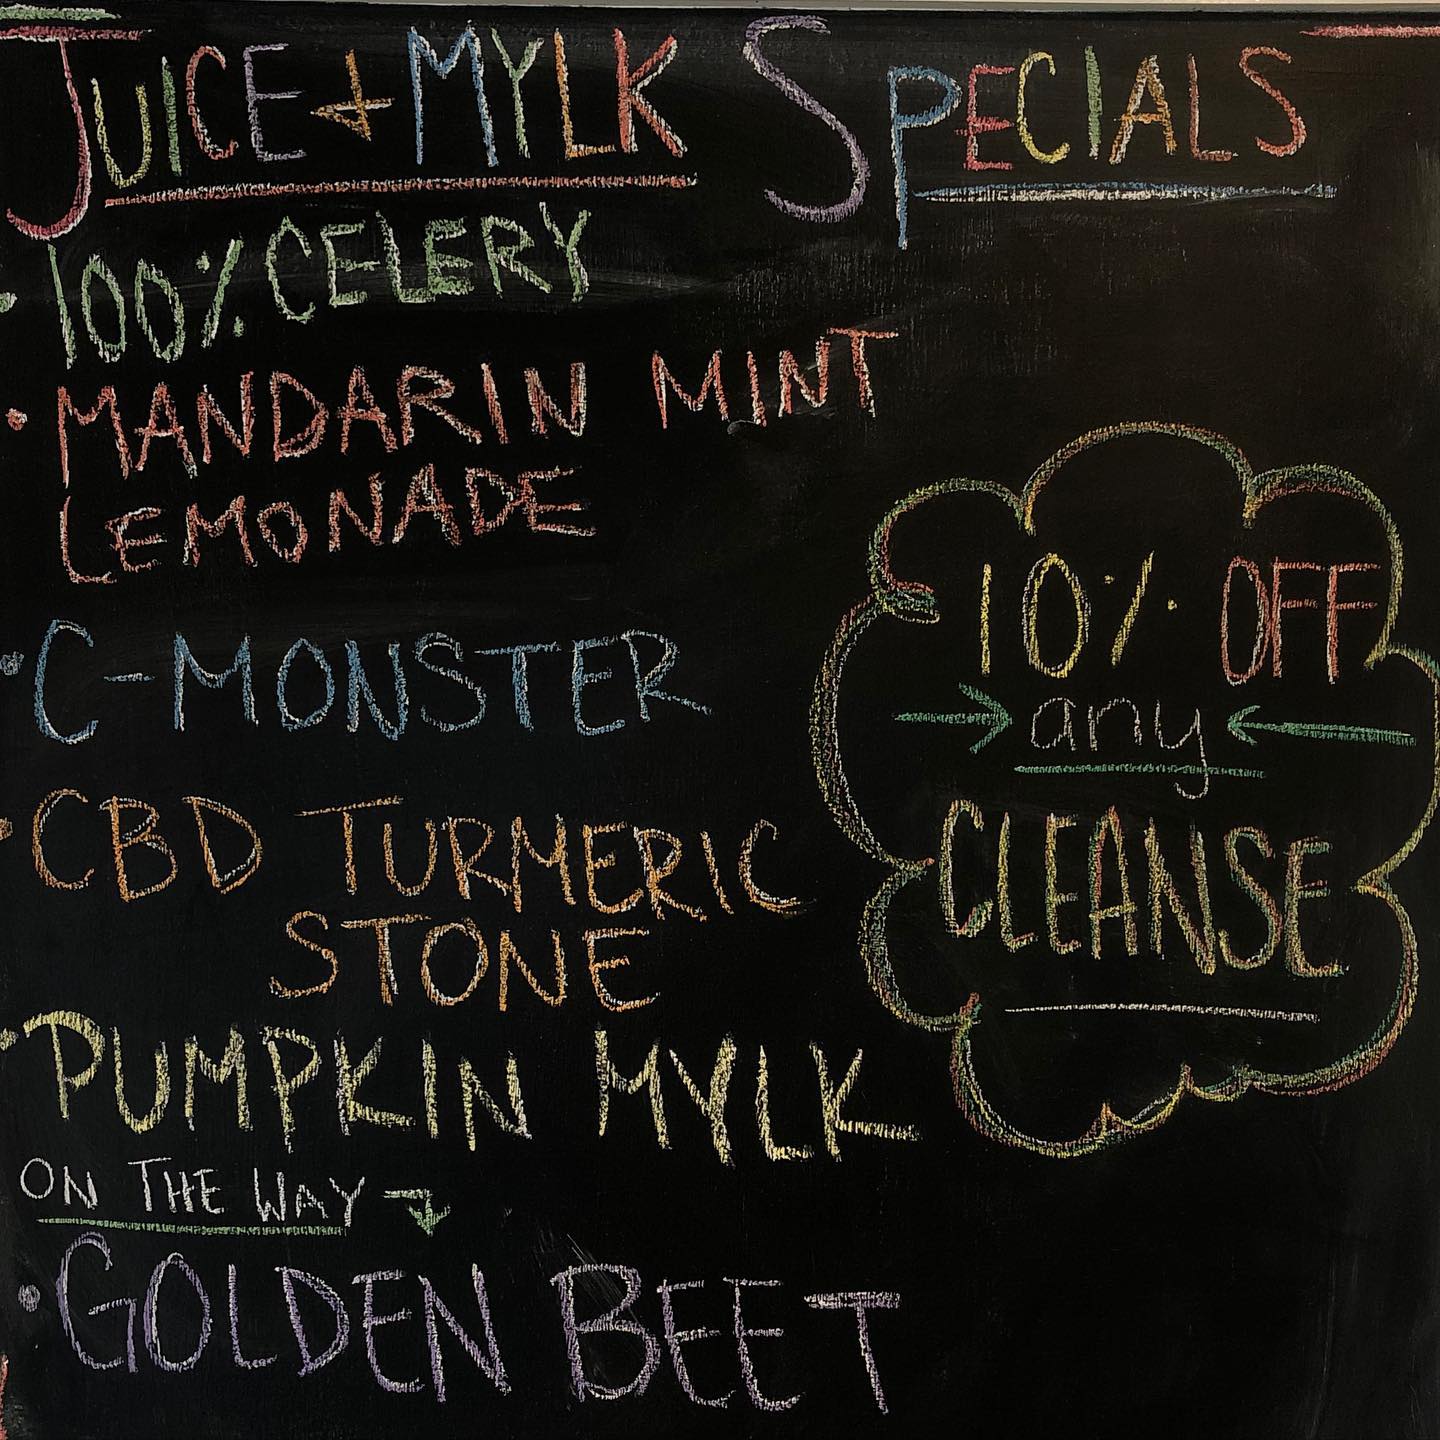 JUICE + MYLK SPECIALS
• 100% CELERY
• MANDARIN MINT
LEMONADE
• C-MONSTER
• CBD TURMERIC
STONE
• PUMPKIN MYLK
ON THE WAY
• GOLDEN BEET
10% OFF
→ any ←
CLEANSE